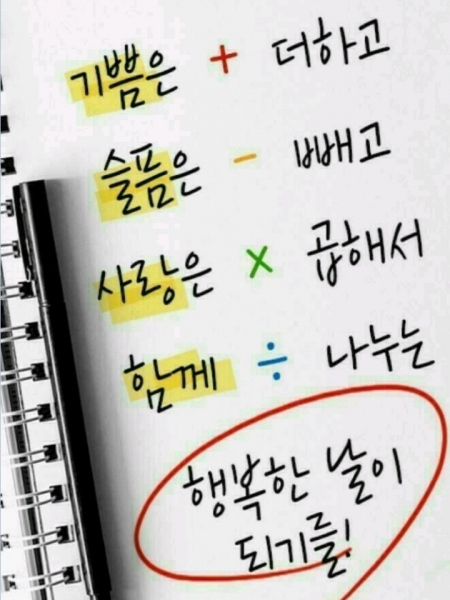 기쁨은 + 더하고
슬픔은 - 빼고
사랑은 × 곱해서
함께 ÷ 나누는
행복한 날이
되기를!